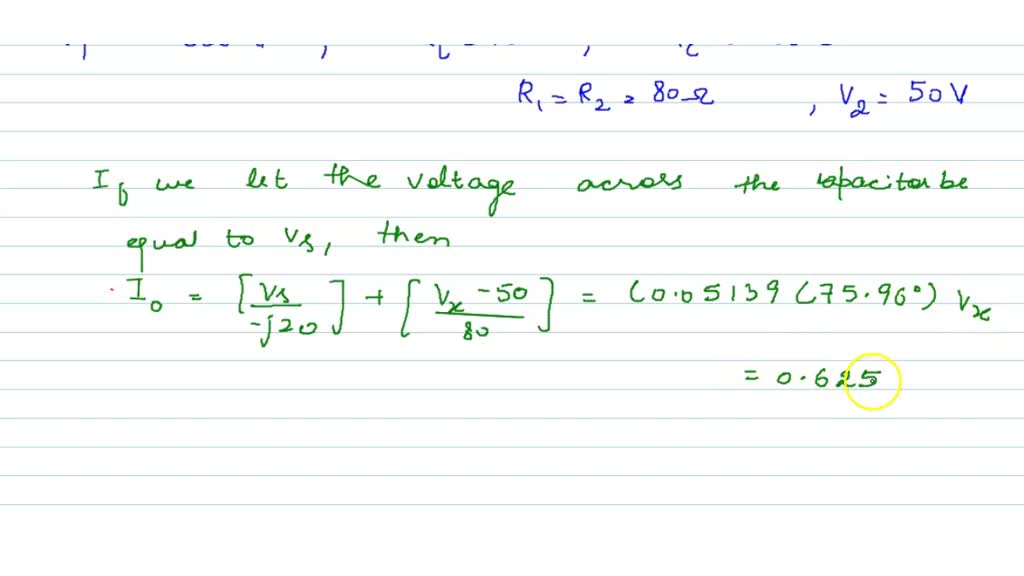 R₁ = R₂ = 80Ω , V₂ = 50V
If we let the voltage across the capacitor be
equal to Vs, then
I₀ = [Vs/-j20] + [Vx - 50/80] = (0.05139 (75.96°) Vx
= 0.625